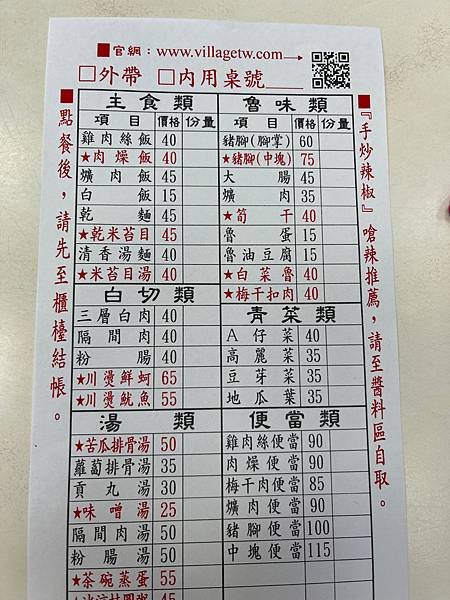 ■官網：www.villagetw.com→
□外帶 □內用桌號
■點餐後，請先至櫃檯結帳。
主食類
項目 價格 份量
雞肉絲飯 40
★肉燥飯 40
爌肉飯 45
白飯 15
乾麵 45
★乾米苔目 45
清香湯麵 40
★米苔目湯 40
白切類
三層白肉 40
隔間肉 40
粉腸 40
★川燙鮮蚵 65
★川燙魷魚 55
湯類
★苦瓜排骨湯 50
蘿蔔排骨湯 35
貢丸湯 30
★味噌湯 25
隔間肉湯 50
粉腸湯 50
★茶碗蒸蛋 55
魯味類
項目 價格 份量
豬腳(腳掌) 60
★豬腳(中塊) 75
大腸 45
爌肉 35
★筍干 40
魯蛋 15
魯油豆腐 15
★白菜魯 40
★梅干扣肉 40
青菜類
A仔菜 40
高麗菜 35
豆芽菜 35
地瓜葉 35
便當類
雞肉絲便當 90
肉燥便當 90
梅干肉便當 85
爌肉便當 90
豬腳便當 100
中塊便當 115
■『手炒辣椒』嗆辣推薦，請至醬料區自取。